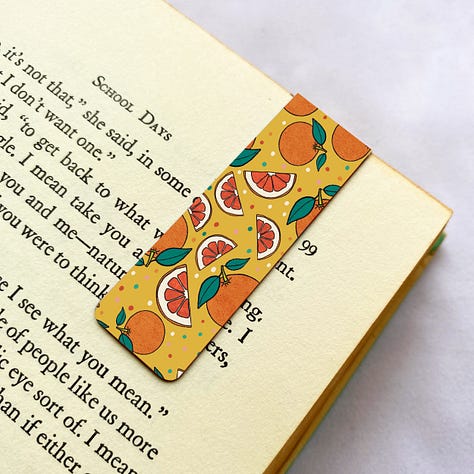 SCHOOL DAYS
99
, it's not that," she said, in some
t I don't want one."
id, "to get back to what w
gle. I mean take you a
you and me—natur nt.
you were to think ng.
ers,
e I see what you mean."
le of people like us more
ic eye sort of. I mean
han if either